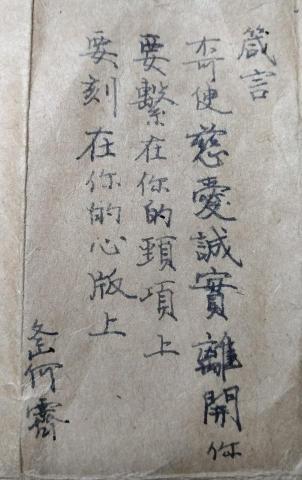 箴言
不可使慈愛誠實離開你
要繫在你的頸項上
要刻在你的心版上